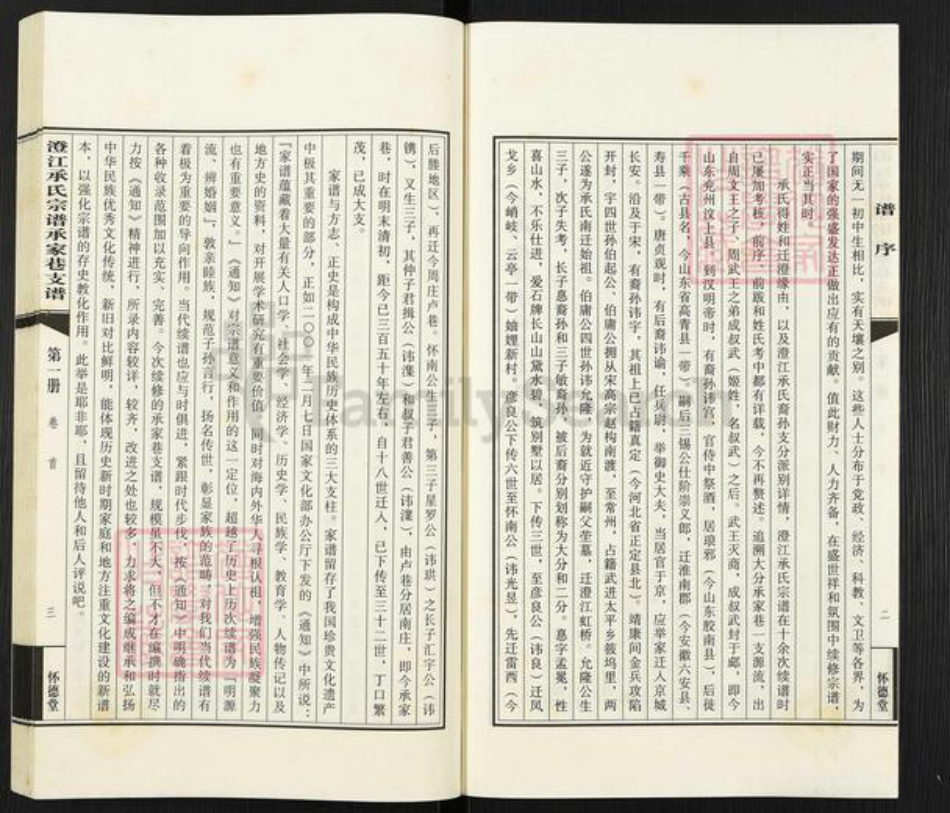 谱序
二
怀德堂
期间无一初中生相比，实有天壤之别。这些人士分布于党政、经济、科教、文卫等各界，为
了国家的强盛发达正做出应有的贡献。值此财力、人力齐备，在盛世祥和氛围中续修宗谱，
实正当其时。
承氏得姓和迁澄缘由，以及澄江承氏裔孙支分派别详情，澄江承氏宗谱在十余次续谱时
已屡加考核，前序、前跋和姓氏考中都有详载，今不再赘述。追溯大分承家巷一支源流，出
自周文王之子、周武王之弟成叔武（姬姓，名叔武）之后。武王灭商，成叔武封于郕，即今
山东兖州汶上县。到汉明帝时，有裔孙讳宫，官侍中祭酒，居琅邪（今山东胶南县），后徙
千乘（古县名，今山东省高青县一带）。嗣后三锡公仕阶崇义郎，迁淮南郡（今安徽六安县、
寿县一带）。唐贞观时，有后裔讳谕，任兵尉，举御史大夫，当居官于京，应举家迁入京城
长安。沿及于宋，有裔孙讳字，其祖上已占籍真定（今河北省正定县北）。靖康间金兵攻陷
开封，字四世孙伯起公、伯庸公拥从宋高宗赵构南渡，至常州，占籍武进太平乡筱坞里，两
公遂为承氏南迁始祖。伯庸公四世孙讳允隆，为就近守护嗣父茔墓，迁澄江虹桥。允隆公生
三子，次子失考，长子惪裔孙和三子敏裔孙，被后裔分别划称为大分和二分。惪字孟冕，性
喜山水，不乐仕进，爱石牌长山山黛水碧，筑别墅以居。下传三世，至彦良公（讳良）迁凤
戈乡（今峭岐、云亭一带）妯娌新村。彦良公下传六世至怀南公（讳光昱），先迁雷西（今
后塍地区），再迁今周庄卢巷。怀南公生三子，第三子星罗公（讳琪）之长子汇宇公（讳
镌），又生三子，其仲子君揖公（讳潗）和叔子君善公（讳濼），由卢巷分居南庄，即今承家
巷，时在明末清初，距今已三百五十年左右，自十八世迁入，已下传至三十二世，丁口繁
茂，已成大支。
家谱与方志、正史是构成中华民族历史体系的三大支柱。家谱留存了我国珍贵文化遗产
中极其重要的部分，正如二〇〇一年二月七日国家文化部办公厅下发的《通知》中所说：
『家谱蕴藏着大量有关人口学、社会学、经济学、历史学、民族学、教育学、人物传记以及
地方史的资料，对开展学术研究有重要价值，同时对海内外华人寻根认祖，增强民族凝聚力
也有重要意义。』《通知》对宗谱意义和作用的这一定位，超越了历史上历次续谱为『明源
流、辨婚姻』，敦亲睦族，规范子孙言行，扬名传世，彰显家族的范畴，对我们当代续谱有
着极为重要的导向作用。当代续谱也应与时俱进，紧跟时代步伐，按《通知》中明确指出的
各种收录范围加以充实、完善。今次续修的承家巷支谱，规模虽不大，但不才在编撰时就尽
力按《通知》精神进行，所录内容较详，较齐，改进之处也较多，力求将之编成继承和弘扬
中华民族优秀文化传统，新旧对比鲜明，能体现历史新时期家庭和地方注重文化建设的新谱
本，以强化宗谱的存史教化作用。此举是耶非耶，且留待他人和后人评说吧。
澄江承氏宗谱承家巷支谱
第一册
卷首
三
怀德堂
FamilySearch